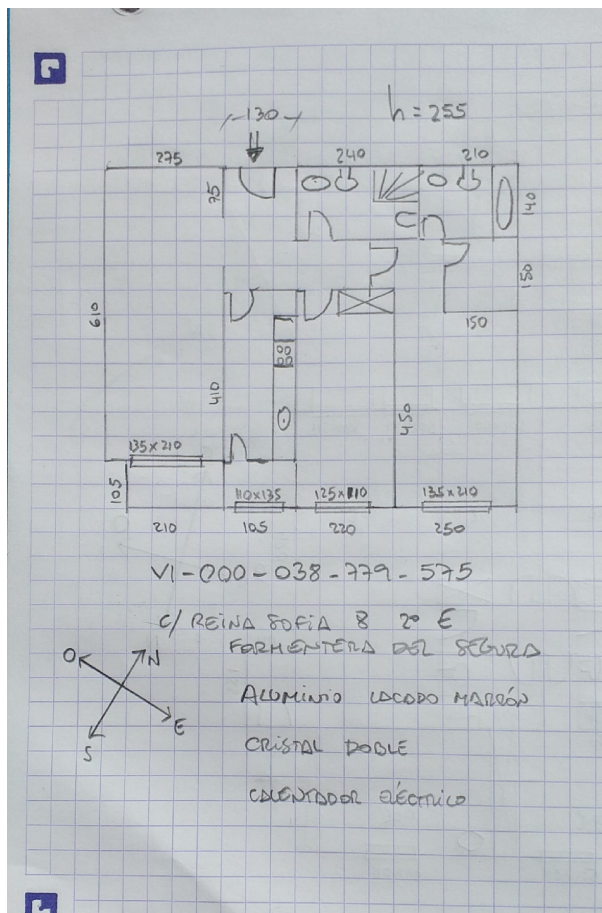 130
h=255
275
240
210
75
140
150
610
150
410
450
135x210
105
110x135
125x110
135x210
210
105
220
250
VI-000-038-779-575
C/ REINA SOFIA 8 2º E
FORMENTERA DEL SEGURA
O
N
S
E
ALUMINIO LACADO MARRÓN
CRISTAL DOBLE
CALENTADOR ELÉCTRICO